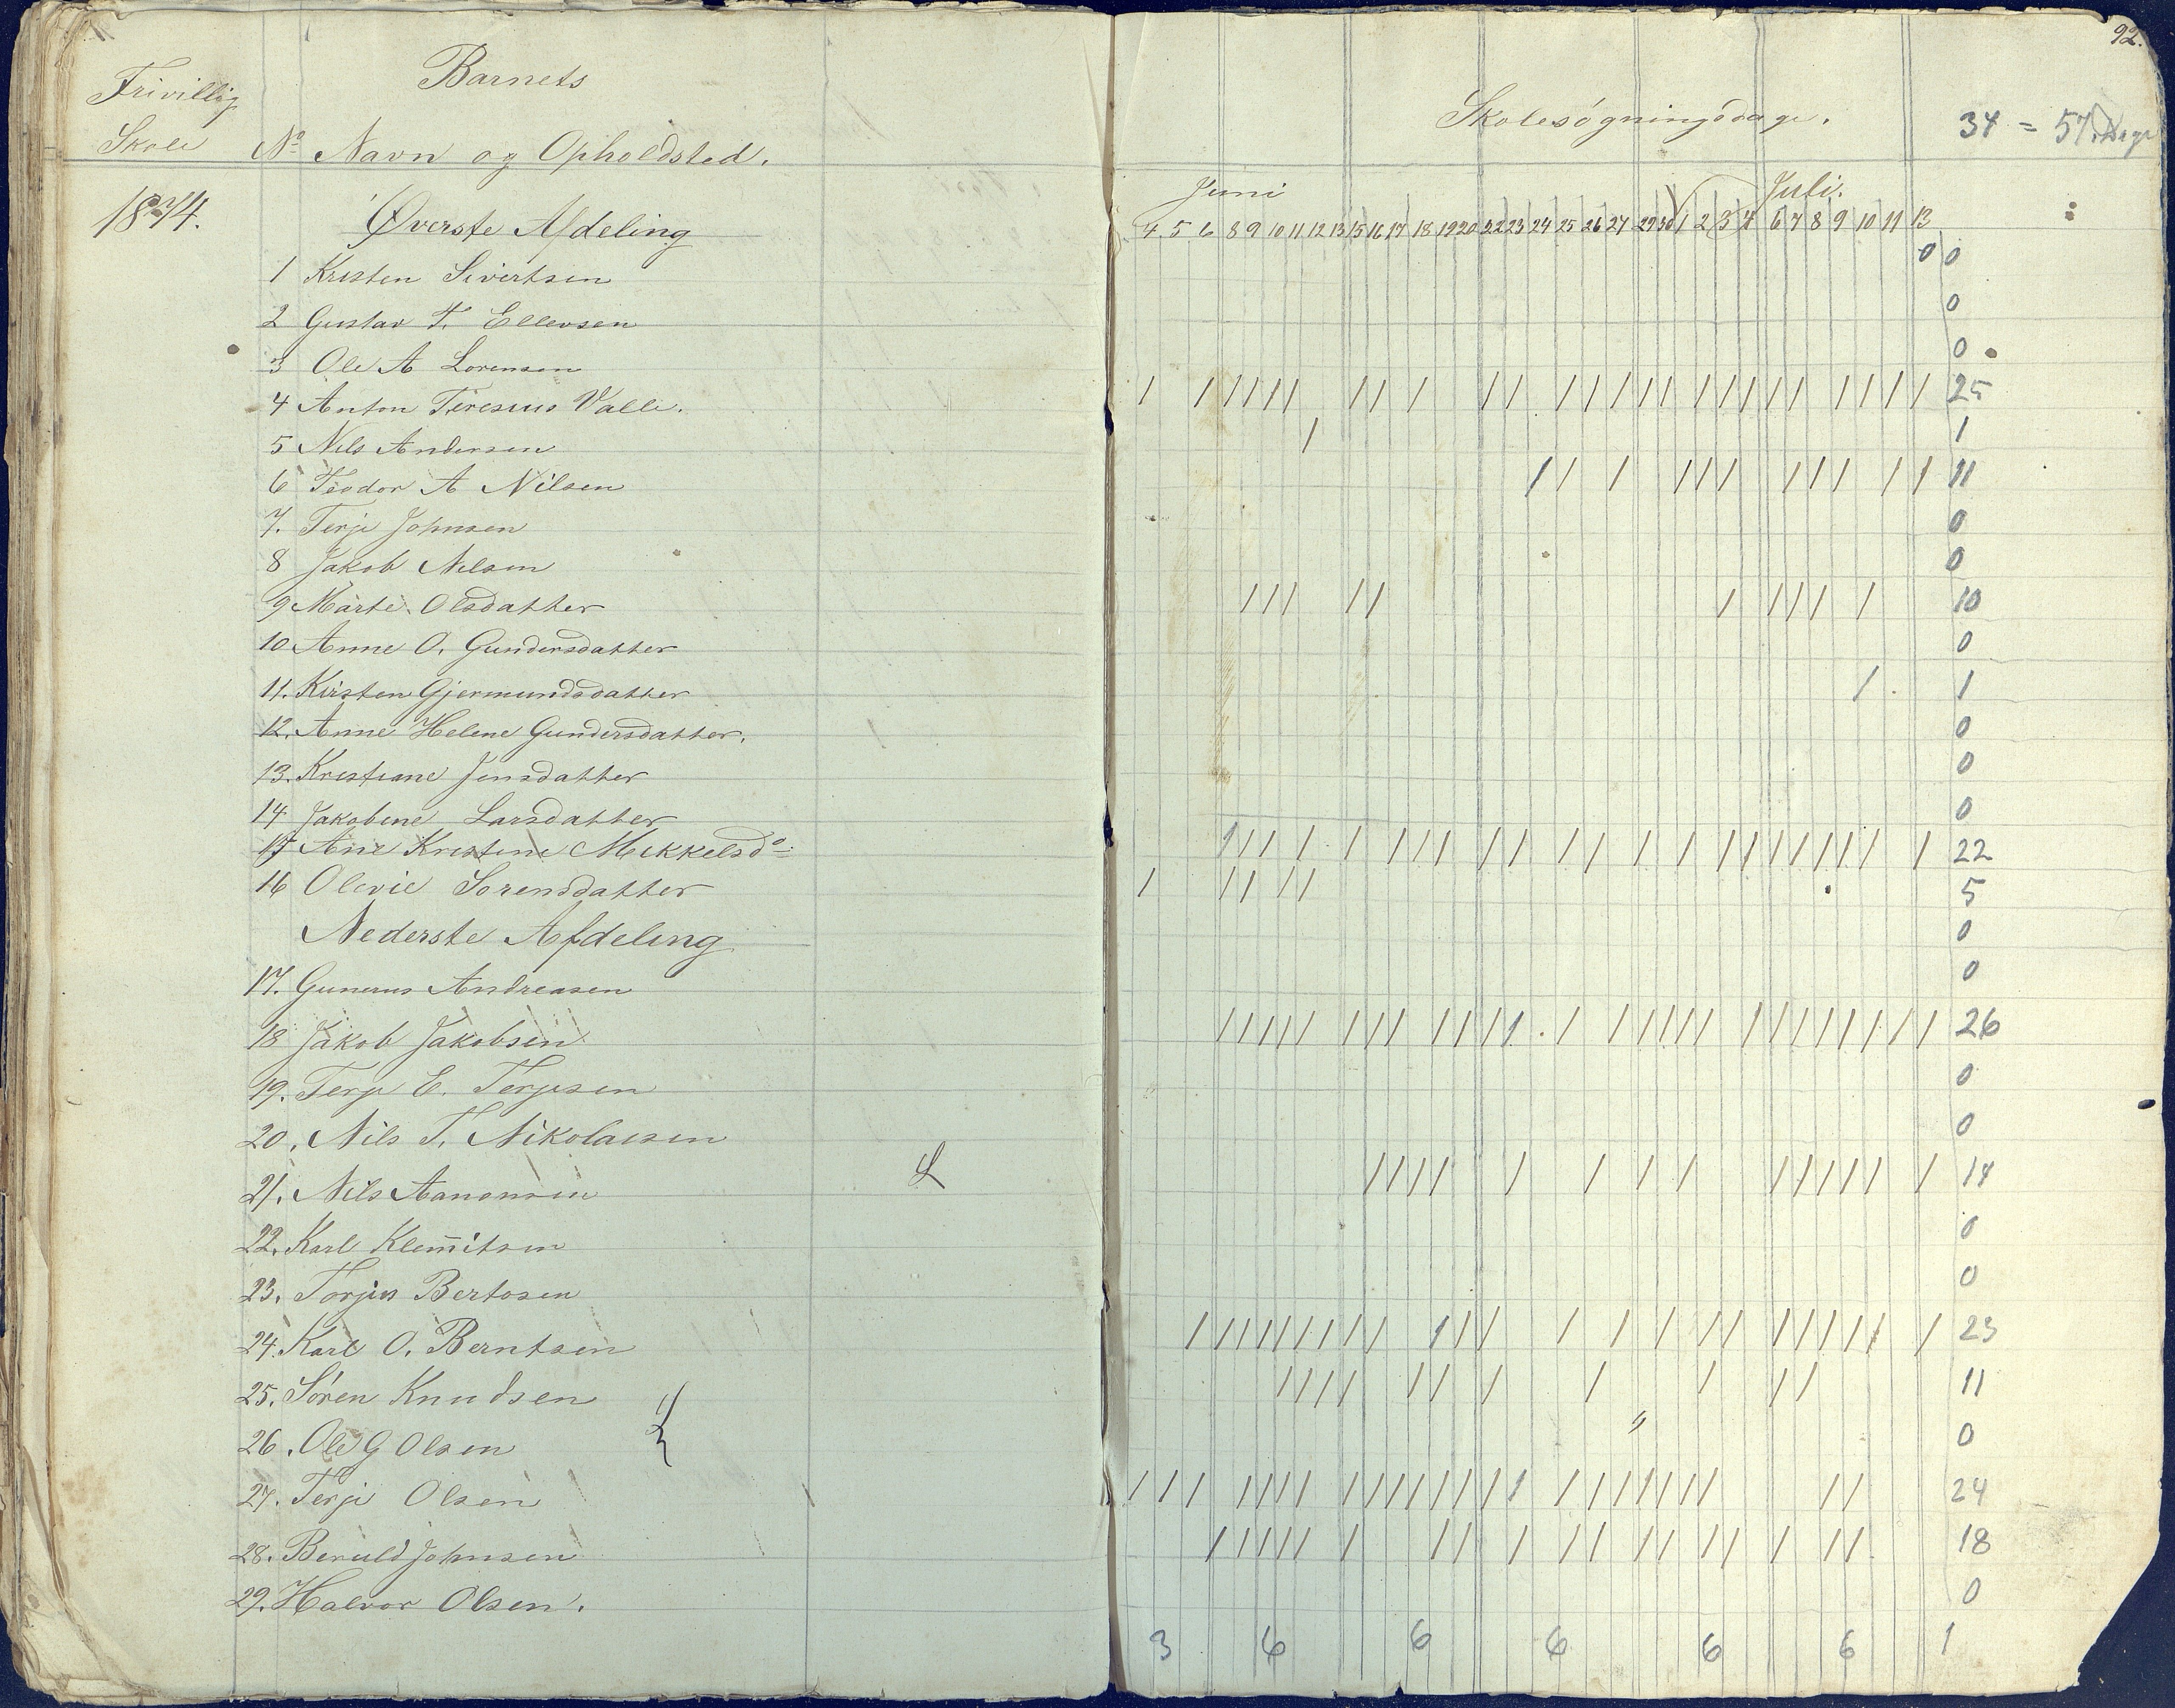 92.
Frivillig
Skole
Barnets
No Navn og Opholdsted.
Skolesøgningsdage.
34 = 57 Dage
1874.
Øverste Afdeling
Juni Juli.
4 5 6 8 9 10 11 12 13 15 16 17 18 19 20 22 23 24 25 26 27 29 30 1 2 3 4 6 7 8 9 10 11 13
1 Kristen Sivertsen 0 0
2 Gustav T. Ellevsen 0
3 Ole A Lorensen 0
4 Anton Teresius Valle. 25
5 Nils Andersen 1
6 Teodor A Nilsen 11
7. Terje Johnsen 0
8 Jakob Nilsen 0
9 Marte Olsdatter 10
10 Anne O. Gundersdatter 0
11. Kirsten Gjermundsdatter 1
12. Anne Helene Gundersdatter. 0
13. Kristiane Jensdatter 0
14 Jakobine Larsdatter 0
15 Ane Kristine Mikkelsdo: 22
16 Olevie Sorensdatter 5
Nederste Afdeling 0
17. Gunerus Andreasen 0
18 Jakob Jakobsen 26
19. Terje E. Terjesen 0
20. Nils T. Nikolaisen 0
21. Nils Aanonsen 14
22. Karl Klem̄itsen 0
23. Torjus Bertosen 0
24. Karl O. Berntsen 23
25. Søren Knudsen 11
26. Ole G Olsen 0
27. Terje Olsen 24
28. Beruld Johnsen 18
29. Halvor Olsen. 0
3 6 6 6 6 6 1